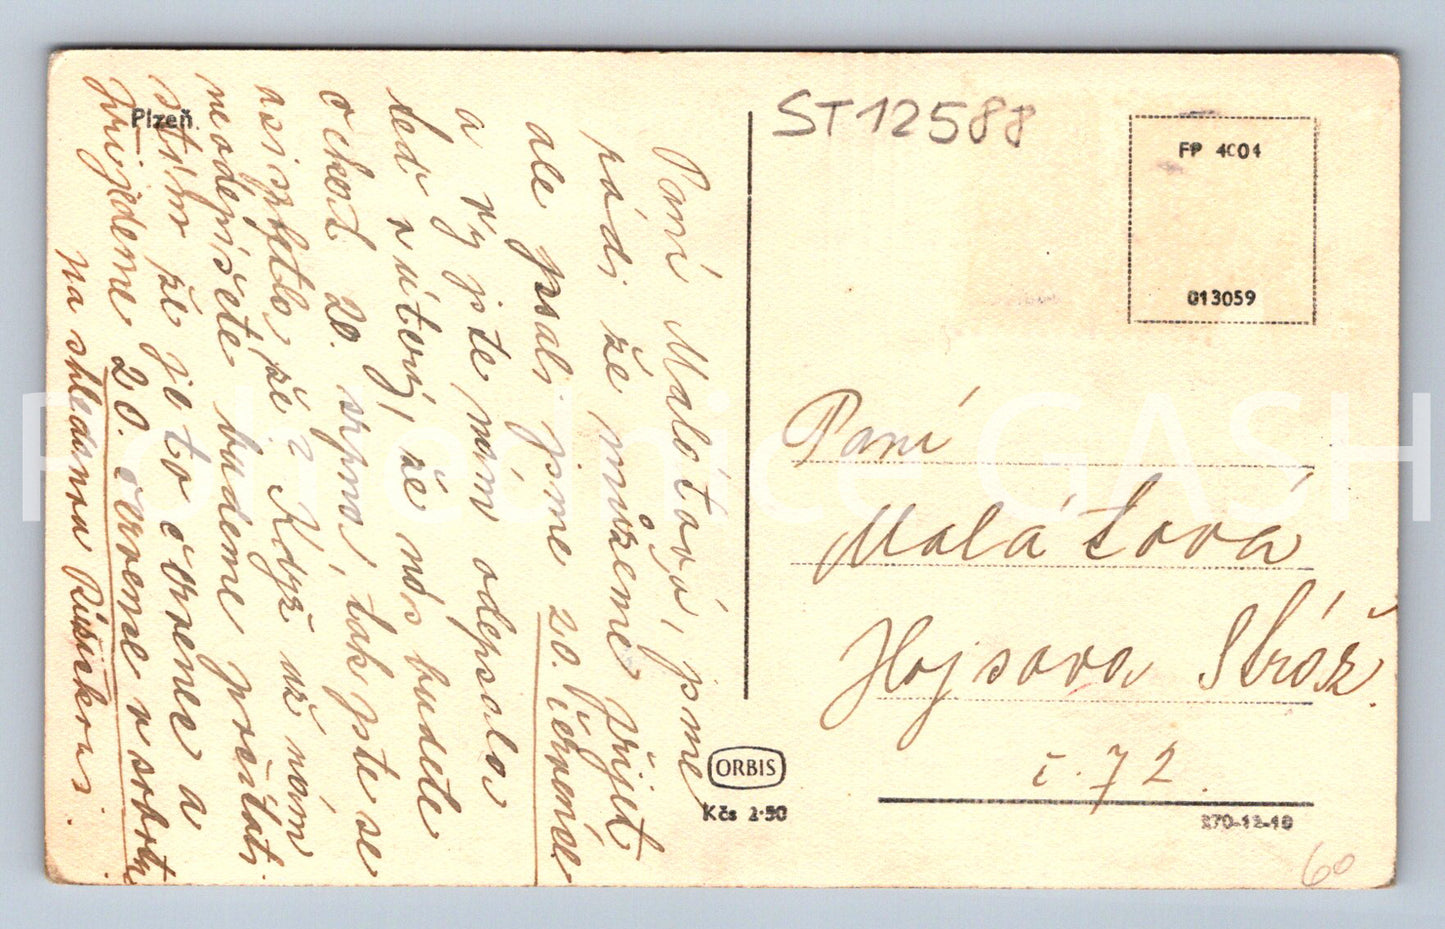 Plzeň.
Paní Malátová, jsme
rádi že můžeme přijet
ale psali jsme 20. června
a Vy jste nám odepsala
led
že nás budete
20. srpna, tak jste se
asi spletla, že? Když už nám
neodepíšete budeme počítat
s tím že je to v červenci a
přijedeme 20. července v sobotu
na shledanou
ST12588
FP 4004
013059
Paní
Malátová
Hojsova Stráž
č. 72.
ORBIS
Kčs 2·50
270-12-10
60
Pohlednice GASH